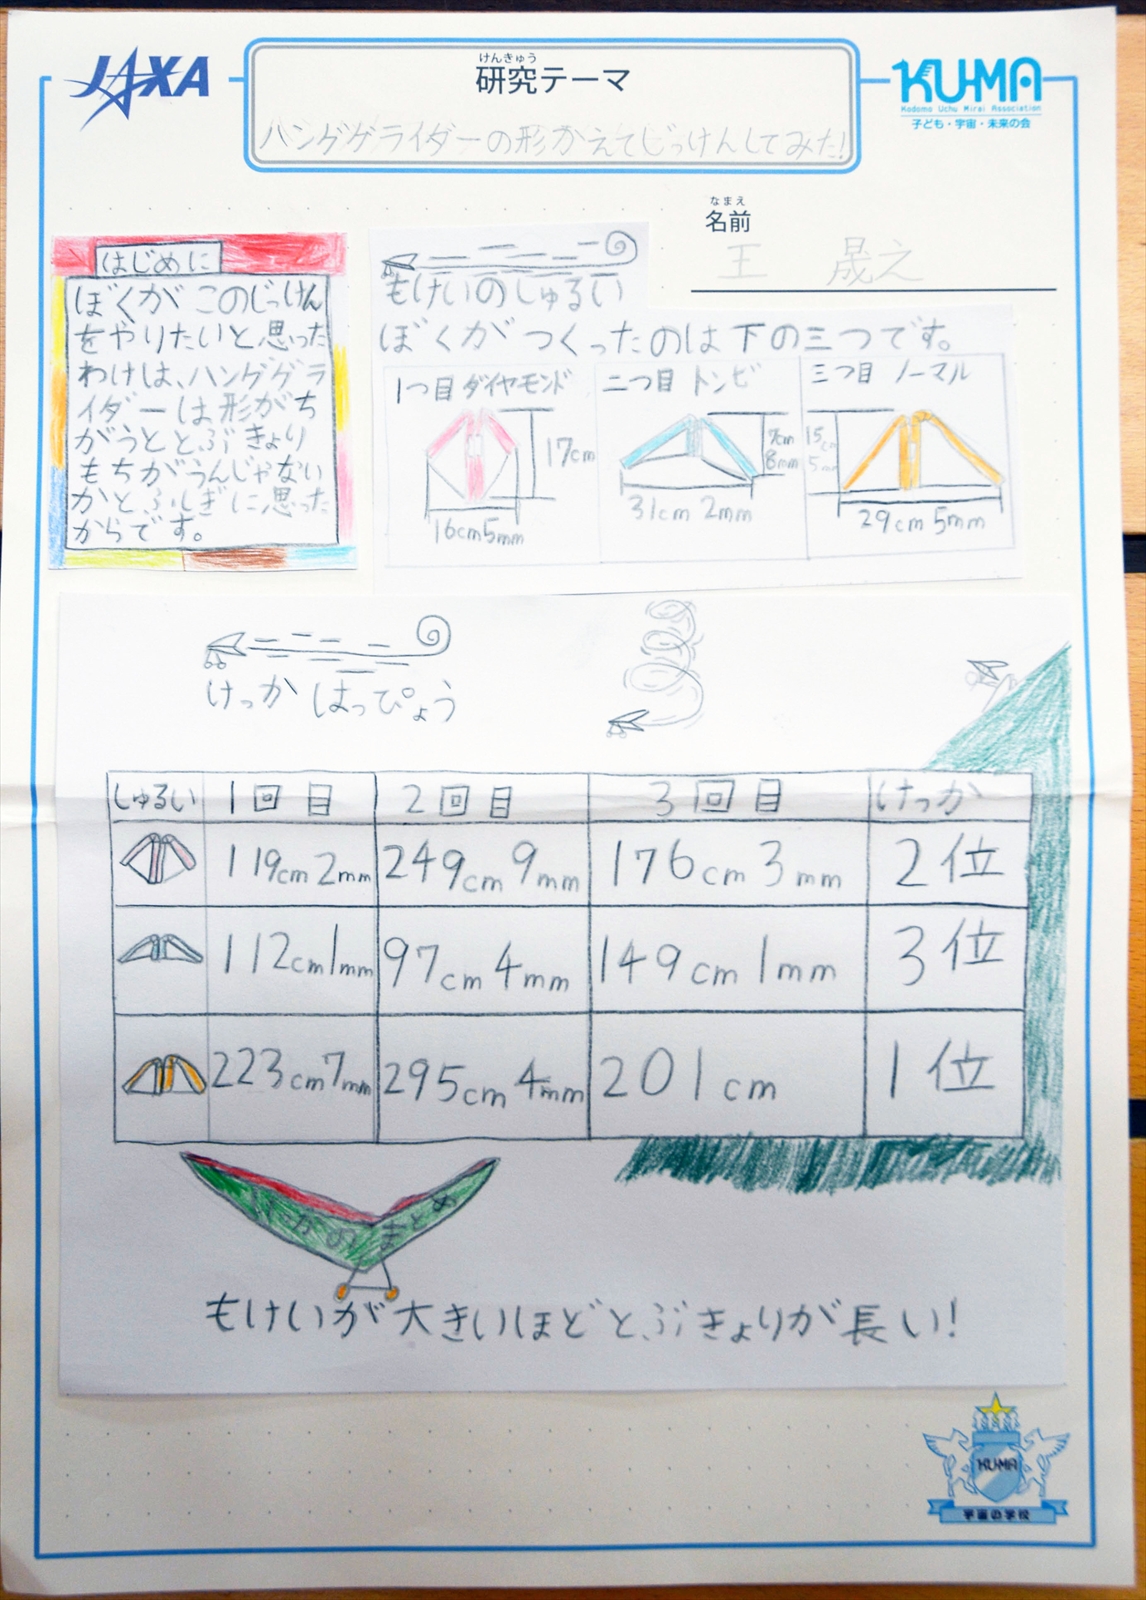 JAXA
けんきゅう
研究テーマ
KU-MA
Kodomo Uchu Mirai Association
子ども・宇宙・未来の会
ハングゲライダーの形かえてじっけんしてみた!
なまえ
名前
王 晟之
はじめに
ぼくがこのじっけん
をやりたいと思った
わけは、ハングゲラ
イダーは形がち
がうととぶきょり
もちがうんじゃない
かとふしぎに思った
からです。
もけいのしゅるい
ぼくがつくったのは下の三つです。
1つ目 ダイヤモンド
17cm
16cm5mm
二つ目 トンビ
7cm
8mm
31cm 2mm
三つ目 ノーマル
15cm
5mm
29cm 5mm
けっか はっぴょう
しゅるい 1回目 2回目 3回目 けっか
119cm2mm 249cm 9mm 176cm 3mm 2位
112cm1mm 97cm 4mm 149cm 1mm 3位
223cm7mm 295cm 4mm 201cm 1位
かのまとめ
もけいが大きいほどとぶきょりが長い!
KU-MA
宇宙の学校